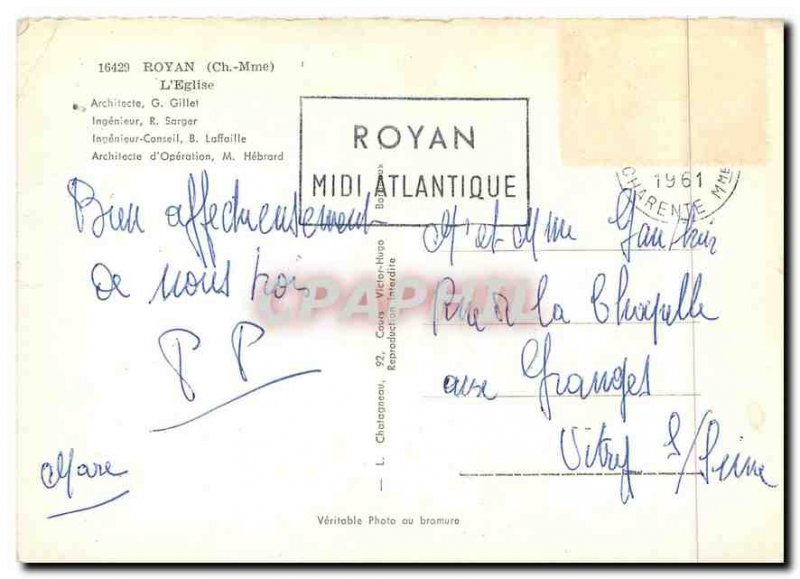 16429 ROYAN (Ch.-Mme)
L'Eglise
Architecte, G. Gillet
Ingénieur, R. Sarger
Ingénieur-Conseil, B. Laffaille
Architecte d'Opération, M. Hébrard
ROYAN
MIDI ATLANTIQUE
1961
CHARENTE MME
Bien affectueusement
de nous trois
P P
M et Mme Gauthier
Rue de la Chapelle
aux Granges
Vitry S/Seine
L. Chatagneau, 92, Cours Victor-Hugo Bordeaux
Reproduction Interdite
CPAPHIL
Véritable Photo au bromure